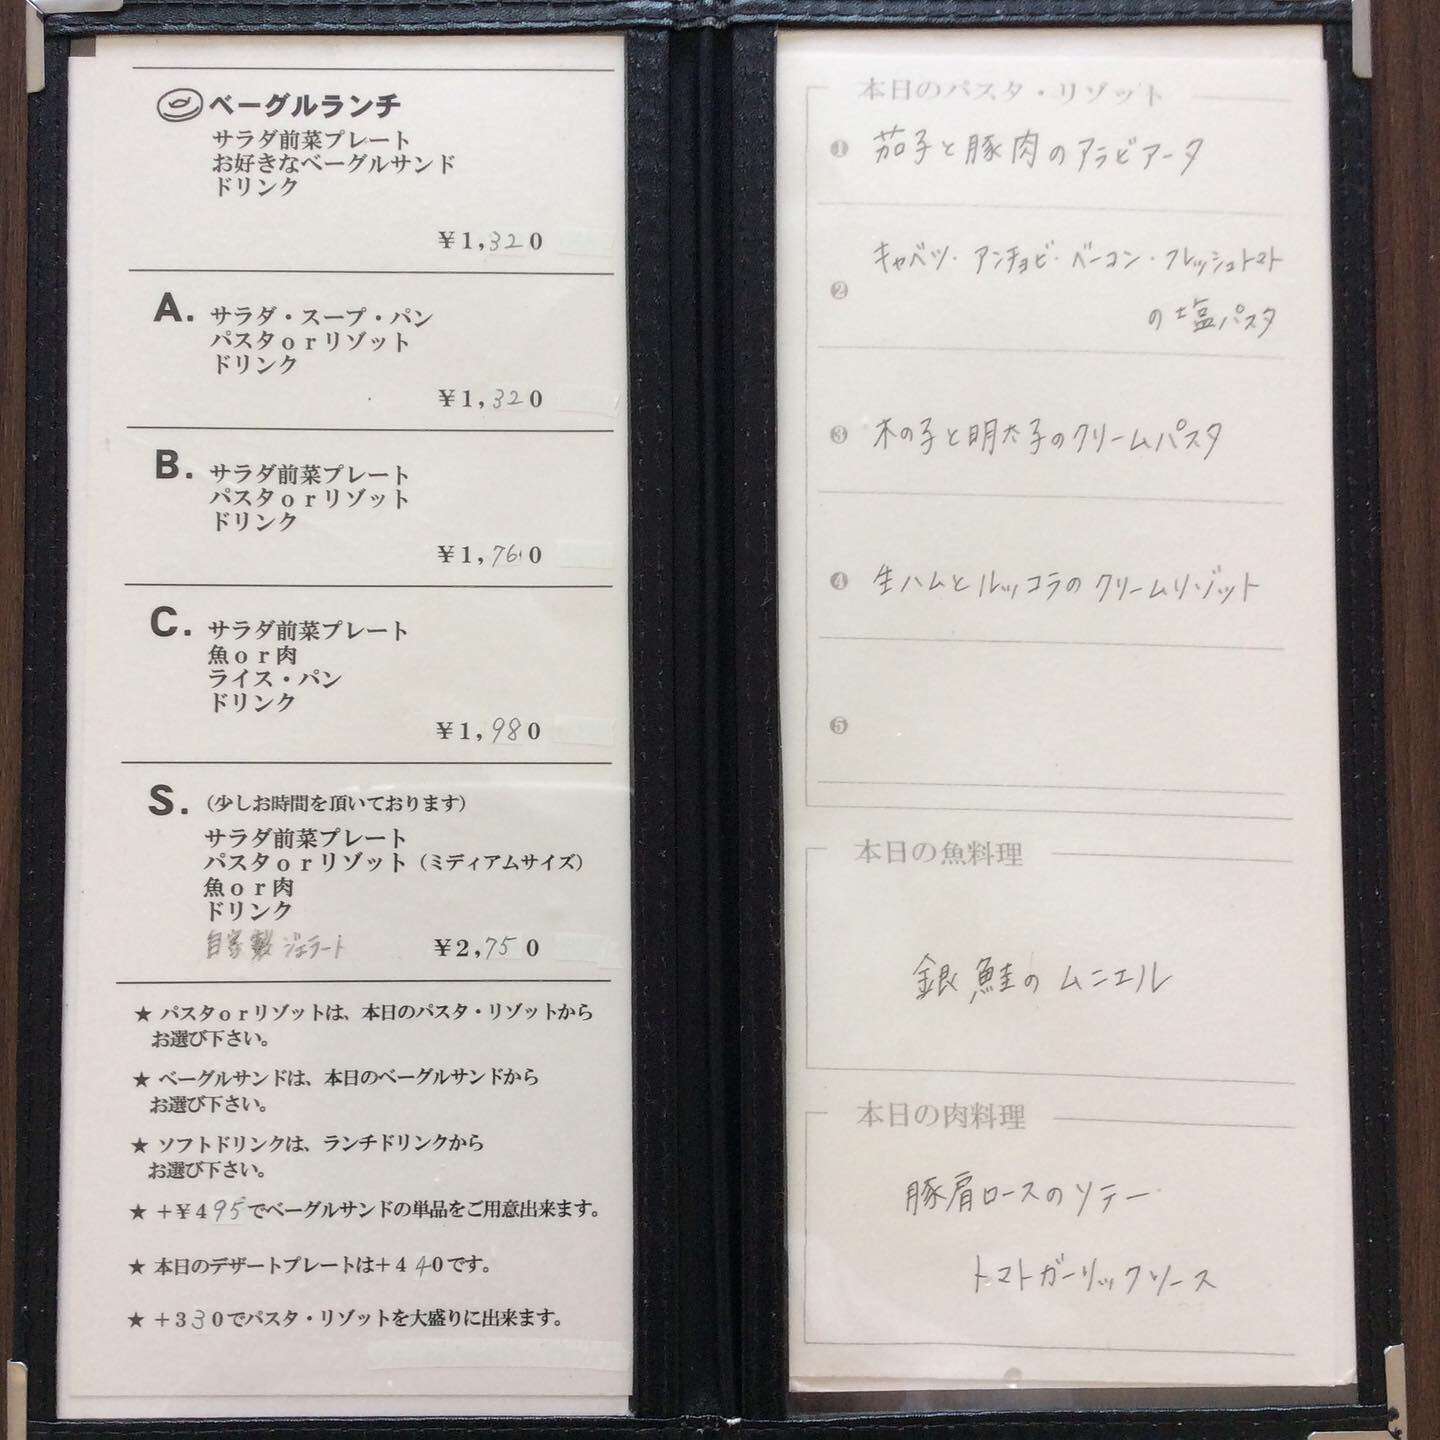 ベーグルランチ
サラダ前菜プレート
お好きなベーグルサンド
ドリンク
¥1,320
A. サラダ・スープ・パン
パスタorリゾット
ドリンク
¥1,320
B. サラダ前菜プレート
パスタorリゾット
ドリンク
¥1,760
C. サラダ前菜プレート
魚or肉
ライス・パン
ドリンク
¥1,980
S.（少しお時間を頂いております）
サラダ前菜プレート
パスタorリゾット（ミディアムサイズ）
魚or肉
ドリンク
自家製ジェラート ¥2,750
★ パスタorリゾットは、本日のパスタ・リゾットから
お選び下さい。
★ ベーグルサンドは、本日のベーグルサンドから
お選び下さい。
★ ソフトドリンクは、ランチドリンクから
お選び下さい。
★ +¥495でベーグルサンドの単品をご用意出来ます。
★ 本日のデザートプレートは+440です。
★ +330でパスタ・リゾットを大盛りに出来ます。
本日のパスタ・リゾット
❶ 茄子と豚肉のアラビアータ
❷ キャベツ・アンチョビ・ベーコン・フレッシュトマト
の塩パスタ
❸ 木の子と明太子のクリームパスタ
❹ 生ハムとルッコラのクリームリゾット
❺
本日の魚料理
銀鮭のムニエル
本日の肉料理
豚肩ロースのソテー
トマトガーリックソース